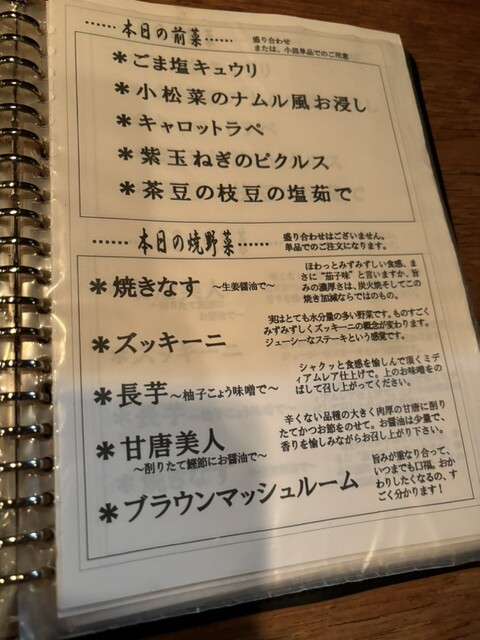 ……本日の前菜……
盛り合わせ
または、小皿単品でのご用意
＊ごま塩キュウリ
＊小松菜のナムル風お浸し
＊キャロットラペ
＊紫玉ねぎのピクルス
＊茶豆の枝豆の塩茹で
……本日の焼野菜……
盛り合わせはございません。
単品でのご注文になります。
＊焼きなす ～生姜醤油で～
ほわっとみずみずしい食感、ま
さに“茄子味”と言いますか、旨
みの濃厚さは、炭火焼そしてこの
焼き加減ならではのもの。
＊ズッキーニ
実はとても水分量の多い野菜です。ものすごく
みずみずしくズッキーニの概念が変わります。
ジューシーなステーキという感覚です。
＊長芋～柚子こょう味噌で～
シャクッと食感を愉しんで頂くミデ
ィアムレア仕上げで。上のお味噌をの
ばして召し上がってください。
＊甘唐美人
～削りたて鰹節にお醤油で～
辛くない品種の大きく肉厚の甘唐に削り
たてかつお節をのせて。お醤油は少量で、
香りを愉しみながらお召し上がり下さい。
＊ブラウンマッシュルーム
旨みが重なり合って、
いつまでも口福。おか
わりしたくなるの、す
ごく分かります！